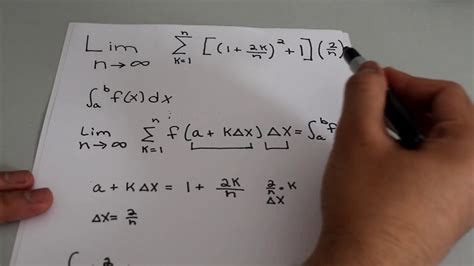 Lim n→∞ n Σ k=1 [(1 + 2k/n)² + 1] (2/n)
∫ₐᵇ f(x) dx
Lim n→∞ n Σ k=1 f(a + kΔx) Δx = ∫ₐᵇ f
a + kΔx = 1 + 2k/n 2/n · k
Δx = 2/n Δx